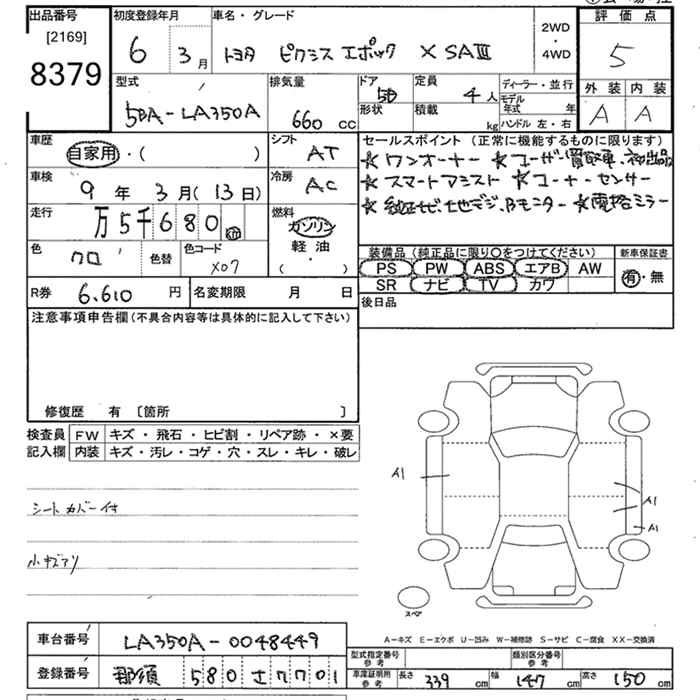 出品番号
[2169]
8379
初度登録年月
6 3月
車名・グレード
トヨタ ピクシス エポック X SAⅢ
2WD
・
4WD
評価点
5
型式
5BA-LA350A
排気量
660 cc
ドア
5D
形状
定員
4人
積載
kg
ディーラー・並行
モデル年式 年
ハンドル 左・右
外装 内装
A A
車歴
自家用・( )
シフト
AT
セールスポイント(正常に機能するものに限ります)
★ワンオーナー ★ユーザー買取車、初出品
★スマートアシスト ★コーナーセンサー
★純正ナビ、地デジ、Bモニター ★電格ミラー
車検
9年3月(13日)
冷房
AC
走行
万5千680 km
燃料
ガソリン
軽油
・
( )
色
クロ
色替
色コード
X07
装備品(純正品に限り○をつけてください)
PS PW ABS エアB AW
SR ナビ TV カワ
新車保証書
有・無
R券 6,610 円
名変期限 月 日
後日品
注意事項申告欄(不具合内容等は具体的に記入して下さい)
修復歴 有 〔箇所 〕
検査員
記入欄
FW キズ・飛石・ヒビ割・リペア跡・×要
内装 キズ・汚レ・コゲ・穴・スレ・キレ・破レ
シートカバー付
小キズアリ
A1
A1
A1
スペア
A-キズ E-エクボ U-凹み W-補修跡 S-サビ C-腐食 XX-交換済
車台番号 LA350A-0048449
登録番号 那須 580 さ 7701
型式指定番号
参考
類別区分番号
参考
車庫証明用
参考
長さ 339 cm 幅 147 cm 高さ 150 cm